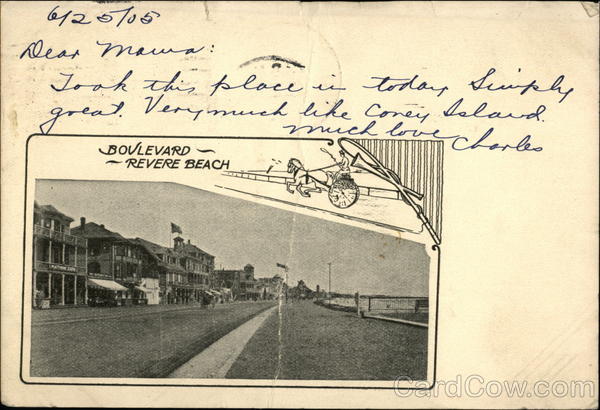 6/25/05
Dear Mama:
Took this place in today Simply
great. Very much like Coney Island.
much love
Charles
BOULEVARD
REVERE BEACH
CardCow.com